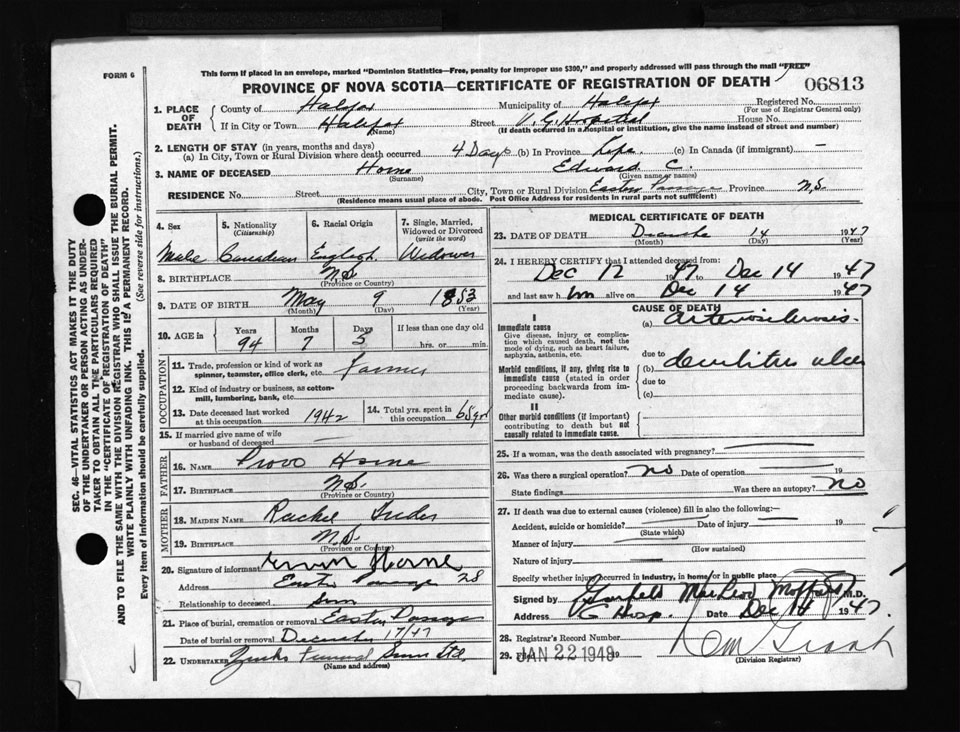 FORM 6
This form if placed in an envelope, marked "Dominion Statistics—Free, penalty for improper use $300," and properly addressed will pass through the mail "FREE"
PROVINCE OF NOVA SCOTIA—CERTIFICATE OF REGISTRATION OF DEATH
06813
1. PLACE OF DEATH
County of Halifax Municipality of Halifax Registered No.
(For use of Registrar General only)
If in City or Town Halifax Street V. G. Hospital House No.
(Name) (If death occurred in a hospital or institution, give the name instead of street and number)
2. LENGTH OF STAY (in years, months and days)
(a) In City, Town or Rural Division where death occurred 4 Days (b) In Province Life (c) In Canada (if immigrant) —
3. NAME OF DECEASED Horne Edward C.
(Surname) (Given name or names)
RESIDENCE No. Street City, Town or Rural Division Eastern Passage Province N.S.
(Residence means usual place of abode. Post Office Address for residents in rural parts not sufficient)
SEC. 46—VITAL STATISTICS ACT MAKES IT THE DUTY
OF THE UNDERTAKER OR PERSON ACTING AS UNDER-
TAKER TO OBTAIN ALL THE PARTICULARS REQUIRED
IN THE "CERTIFICATE OF REGISTRATION OF DEATH"
AND TO FILE THE SAME WITH THE DIVISION REGISTRAR WHO SHALL ISSUE THE BURIAL PERMIT.
WRITE PLAINLY WITH UNFADING INK. THIS IS A PERMANENT RECORD.
Every item of information should be carefully supplied. (See reverse side for instructions.)
4. Sex
5. Nationality (Citizenship)
6. Racial Origin
7. Single, Married, Widowed or Divorced (write the word)
Male Canadian English Widower
8. BIRTHPLACE N.S.
(Province or Country)
9. DATE OF BIRTH May 9 1853
(Month) (Day) (Year)
10. AGE in Years Months Days If less than one day old
94 7 5 hrs. or min.
OCCUPATION
11. Trade, profession or kind of work as spinner, teamster, office clerk, etc. Farmer
12. Kind of industry or business, as cotton-mill, lumbering, bank, etc.
13. Date deceased last worked at this occupation 1942
14. Total yrs. spent in this occupation 65 yrs
15. If married give name of wife or husband of deceased
FATHER
16. NAME Provo Horne
17. BIRTHPLACE N.S.
(Province or Country)
MOTHER
18. MAIDEN NAME Rachel
19. BIRTHPLACE N.S.
(Province or Country)
20. Signature of informant Horne
Address Eastern Passage 28
Relationship to deceased Son
21. Place of burial, cremation or removal Eastern Passage
Date of burial or removal December 17/47
22. UNDERTAKER Funeral Ltd.
(Name and address)
MEDICAL CERTIFICATE OF DEATH
23. DATE OF DEATH December 14 1947
(Month) (Day) (Year)
24. I HEREBY CERTIFY that I attended deceased from:
Dec 12 1947 to Dec 14 1947
and last saw him alive on Dec 14 1947
CAUSE OF DEATH
I
Immediate cause
Give disease, injury or complication which caused death, not the mode of dying, such as heart failure, asphyxia, asthenia, etc.
(a) Arteriosclerosis
due to
Morbid conditions, if any, giving rise to immediate cause (stated in order proceeding backwards from immediate cause).
(b) decubitus ulcer
due to
(c)
II
Other morbid conditions (if important) contributing to death but not causally related to immediate cause.
25. If a woman, was the death associated with pregnancy?
26. Was there a surgical operation? No Date of operation 19
State findings Was there an autopsy? No
27. If death was due to external causes (violence) fill in also the following:—
Accident, suicide or homicide? Date of injury 19
(State which)
Manner of injury
(How sustained)
Nature of injury
Specify whether injury occurred in industry, in home or in public place
Signed by MacLeod Moffatt M.D.
Address Hosp. Date Dec 14 1947
28. Registrar's Record Number
29. Filed JAN 22 1948 19
(Division Registrar)